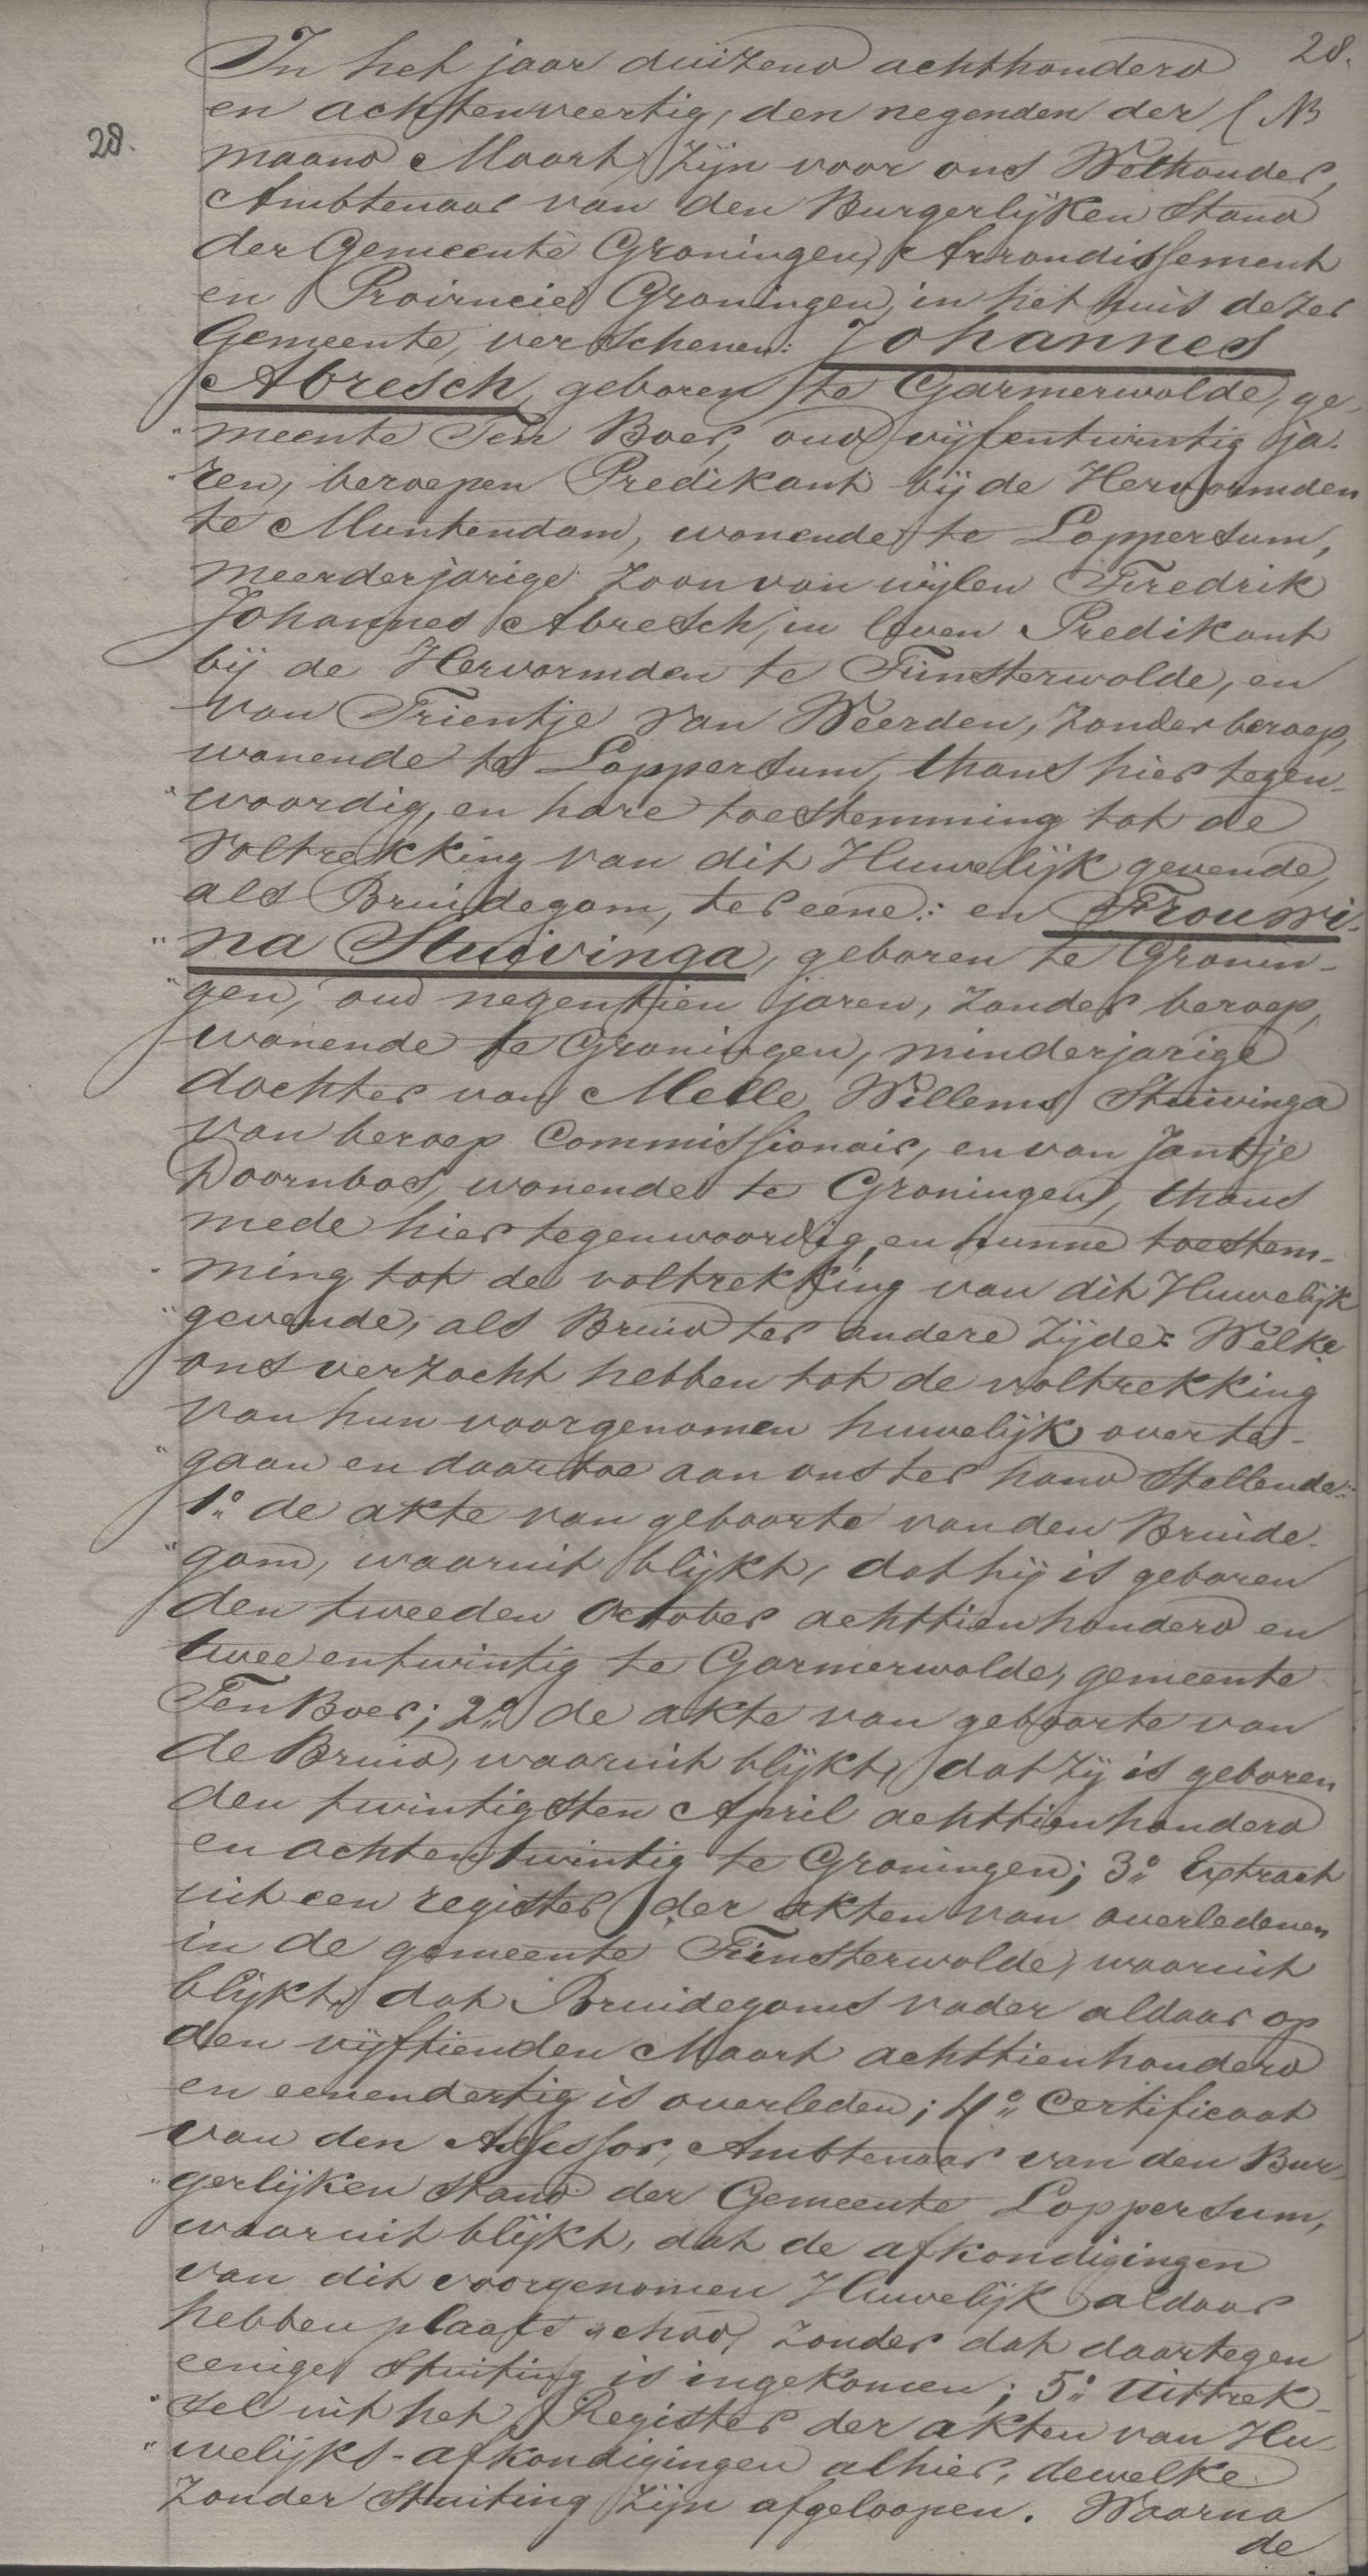 28.
In het jaar duizend achthonderd
en achtenveertig, den negenden der
28.
maand Maart zijn voor ons Wethouder,
Ambtenaar van den Burgerlijken Stand
der Gemeente Groningen, Arrondissement
en Provincie Groningen, in het huis dezer
Gemeente, verschenen: Johannes
Abresch, geboren te Garmerwolde, ge-
"meente Ten Boer, oud vijfentwintig ja-
"ren, beroepen Predikant bij de Hervormden
te Muntendam, wonende te Loppersum,
meerderjarige zoon van wijlen Fredrik
Johannes Abresch, in leven Predikant
bij de Hervormden te Finsterwolde, en
van Trientje van Weerden, zonder beroep,
wonende te Loppersum, thans hier tegen-
"woordig, en hare toestemming tot de
voltrekking van dit Huwelijk gevende,
als Bruidegom, ter eene: en Frouwi-
"na Stuivinga, geboren te Gronin-
"gen, oud negentien jaren, zonder beroep,
wonende te Groningen, minderjarige
dochter van Melle Willems Stuivinga
van beroep Commissionair, en van Jantje
Doornbos, wonende te Groningen, thans
mede hier tegenwoordig, en hunne toestem-
"ming tot de voltrekking van dit Huwelijk
gevende, als Bruid ter andere zijde: Welke
ons verzocht hebben tot de voltrekking
van hun voorgenomen huwelijk over te-
"gaan en daartoe aan ons ter hand stellende:
1° de akte van geboorte van den Bruide-
"gom, waaruit blijkt, dat hij is geboren
den tweeden October achttienhonderd en
twee entwintig te Garmerwolde, gemeente
Ten Boer; 2° de akte van geboorte van
de Bruid, waaruit blijkt, dat zij is geboren
den twintigsten April achttienhonderd
en achtentwintig te Groningen; 3° Extract
uit een register der akten van overledenen
in de gemeente Finsterwolde, waaruit
blijkt, dat Bruidegoms vader aldaar op
den vijftienden Maart achttienhonderd
en eenendertig is overleden; 4° Certificaat
van den Assessor, Ambtenaar van den Bur-
"gerlijken Stand der Gemeente Loppersum,
waaruit blijkt, dat de afkondigingen
van dit voorgenomen Huwelijk aldaar
hebben plaats gehad, zonder dat daartegen
eenige stuiting is ingekomen; 5° Uittrek-
"sel uit het Register der akten van Hu-
"welijks-afkondigingen alhier, dewelke
zonder stuiting zijn afgeloopen. Waarna
de